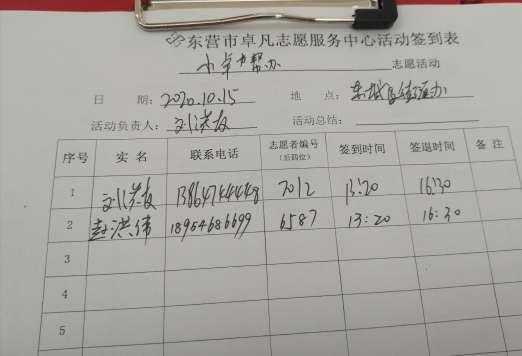 东营市卓凡志愿服务中心活动签到表
小卓帮办 志愿活动
日 期： 2020.10.15 地 点： 东城街道办
活动负责人： 刘洪友 活动总结：
序号 实名 联系电话 志愿者编号（后四位） 签到时间 签退时间 备注
1 刘洪友 13864744448 7012 13:20 16:30
2 赵洪伟 18954686699 6587 13:20 16:30
3
4
5